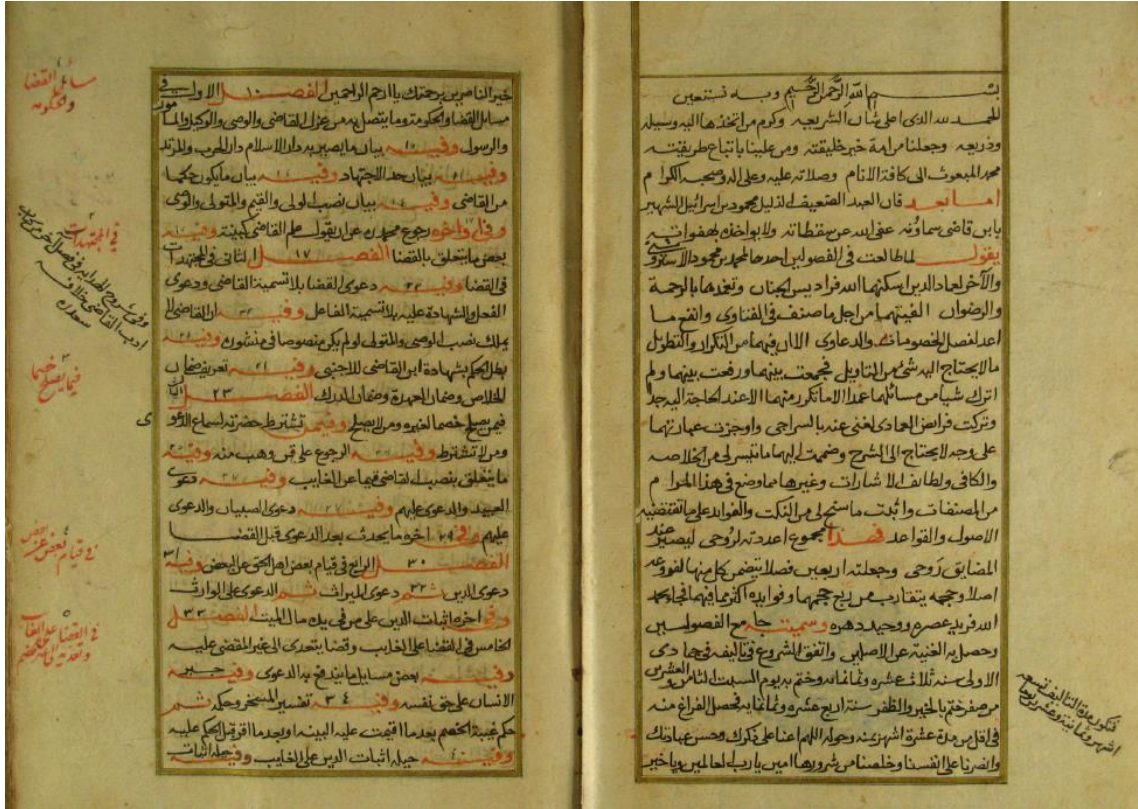 بسم الله الرحمن الرحيم وبه نستعين
الحمد لله الذى اعلى شان الشريعه وكرم من اتخذها اليه وسيله
وذريعه وجعلنا من امة خير خليقته ومن علينا باتباع طريقته
محمد المبعوث الى كافة الانام وصلاته عليه وعلى اله وصحبه الكرام
اما بعد فان العبد الضعيف الذليل محمود بن اسرائيل الشهير
بابن قاضى سماونه عفى الله عن سقطاته ولا يواخذه بهفواته
يقول لما طالعت فى الفصولين احدهما لمحمد بن محمود الاستروشنى
والآخر لعماد الدين اسكنهما الله فراديس الجنان وتغمدهما بالرحمة
والرضوان الفيتهما من اجل ما صنف فى الفتاوى وانفع ما
اعد لفصل الخصومات والدعاوى الا ان فيهما من التكرار والتطويل
مالا يحتاج اليه شئ من التاويل فجمعت بينهما ورفعت بينهما ولم
اترك شيا من مسائلهما عمدا الا ما تكرر منهما الا عند الحاجة اليه جدا
وتركت فرايض العمادى لغنى عنه بالسراجى واوجزت عبارتهما
على وجه لا يحتاج الى الشرح وضممت اليهما ما تيسر لى من الخلاصه
والكافى ولطايف الاشارات وغيرها مما وضع فى هذا المرام
من المصنفات واثبت ما سنح لى من النكت والفوايد على ما تقتضيه
الاصول والقواعد فهذا مجموع اعددته لروحى ليصير عند
المضايق روحى وجعلته اربعين فصلا يتضمن كل منها لفوعد
اصلا وحجمه يتقارب من ربع حجمهما وفوايده اكثر مما فيهما فجاء بحمد
الله فريد عصره ووحيد دهره وسميته جامع الفصولين
وحصل به الغنية عن الاصلين واتفق الشروع فى تاليفه فى جمادى
الاولى سنه ثلاث عشره وثمانمائه وختم به يوم السبت الثامن والعشرين
من صفر ختم بالخير والظفر سنة اربع عشره وثمانمايه فحصل الفراغ منه
فى اقل من مدة عشرة اشهر بمنه وحوله اللهم اعنا على ذكرك وحسن عبادتك
وانصرنا على انفسنا وخلصنا من شرورها امين يا رب العالمين ويا خير
فتكون مدة التاليف تسعه
اشهر وثمانية وعشرين يوما
خير الناصرين برحمتك يا ارحم الراحمين الفصل ١٠ الاول فى
مسائل القضا والحكومة وما يتصل به من عزل القاضى والوصى والوكيل والمامور
والرسول وفيه بيان ما يصير به دار الاسلام دار الحرب والمرتد
وفيه بيان حد الاجتهاد وفيه بيان ما يكون حكما
من القاضى وفيه بيان نصب الولى والقيم والمتولى والوصى
وفى اخره رجوع محمد ره عن ان يقول علم القاضى كبينة وفيه
بعض ما يتعلق بالقضا الفصل ١٧ الثانى فى المجتهدات
فى القضا وفيه دعوى القضا بلا تسمية القاضى ودعوى
الفعل والشهادة عليه بلا تسمية الفاعل وفيه ان القاضى لا
يملك نصب الوصى والمتولى لو لم يكن منصوصا فى منشوره وفيه
بطل الحكم بشهادة ابن القاضى للاجنبى وفيه تعريف ضمان
الخلاص وضمان العهدة وضمان الدرك الفصل ٢٣ الثالث
فيمن يصلح خصما لغيره ومن لا يصلح وفيمن تشترط حضرته لسماع الدعوى
ومن لا تشترط وفيه الرجوع على قن وهب منه وفيه
ما يتعلق بنصب القاضى قيما عن الغايب وفيه دعوى
العبيد والدعوى عليهم وفيه دعوى الصبيان والدعوى
عليهم وفى اخره ما يحدث بعد الدعوى قبل القضا
الفصل ٣٠ الرابع فى قيام بعض اهل الحق عن البعض وفيه
دعوى الدين ثم دعوى الميراث ثم الدعوى على الوارث
وفى اخره اثبات الدين على من فى يده مال الميت الفصل ٣٣
الخامس فى القضا على الغايب وقضا يتعدى الى غير المقضى عليه
وفيه بعض مسايل ما يندفع به الدعوى وفيه حبر
الانسان على حق نفسه وفيه ٣٤ تفسير المسخر وحكمه ثم
حكم غيبة الخصم بعد ما اقيمت عليه البينه وبعد ما اقر قبل الحكم عليه
وفيه حيله اثبات الدين على الغايب وفيه حيلة اثبات
مسائل القضا
والحكومه
فى المجتهدات
فيما يصلح خصما
فى قيام بعض عن بعض